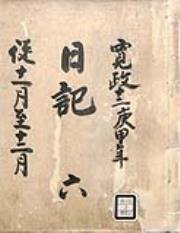 寛政十二庚申年
日記 六
從十一月至十二月